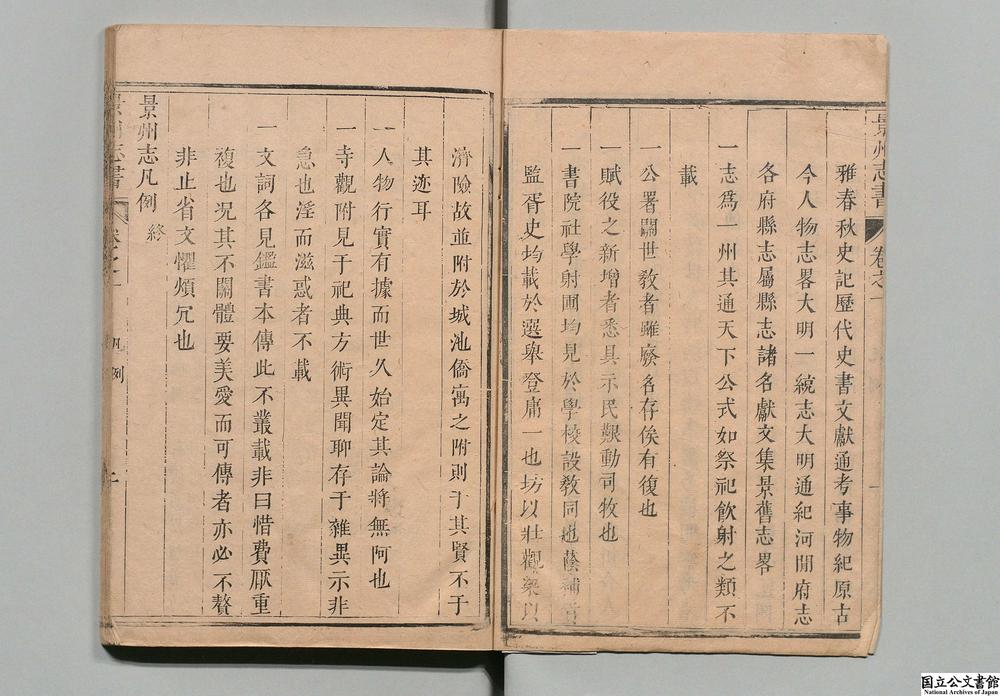 景州志書 卷之一
雅春秋史記歷代史書文獻通考事物紀原古
今人物志畧大明一統志大明通紀河閒府志
各府縣志屬縣志諸名獻文集景舊志畧
一志爲一州其通天下公式如祭祀飲射之類不
載
一公署關世敎者雖廢名存俟有復也
一賦役之新增者悉具示民艱動司牧也
一書院社學射圃均見於學校設敎同也蔭補
監胥史均載於選舉登庸一也坊以壯觀梁以
濟險故並附於城池僑寓之附則于其賢不于
其迹耳
一人物行實有據而世久始定其論將無阿也
一寺觀附見于祀典方術異聞聊存于雜異示非
急也淫而滋惑者不載
一文詞各見鑑書本傳此不叢載非曰惜費厭重
複也况其不關體要美愛而可傳者亦必不贅
非止省文懼煩冗也
景州志凡例 終
凡例
国立公文書館
National Archives of Japan